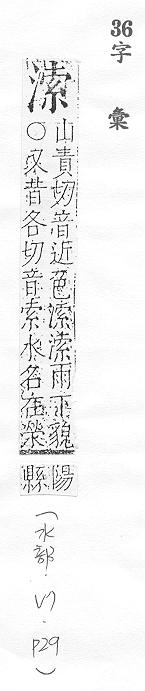 36字彙
溹
山責切音近色溹溹雨下貌
○又昔各切音索水名在滎
陽縣
(水部．巳．P29)